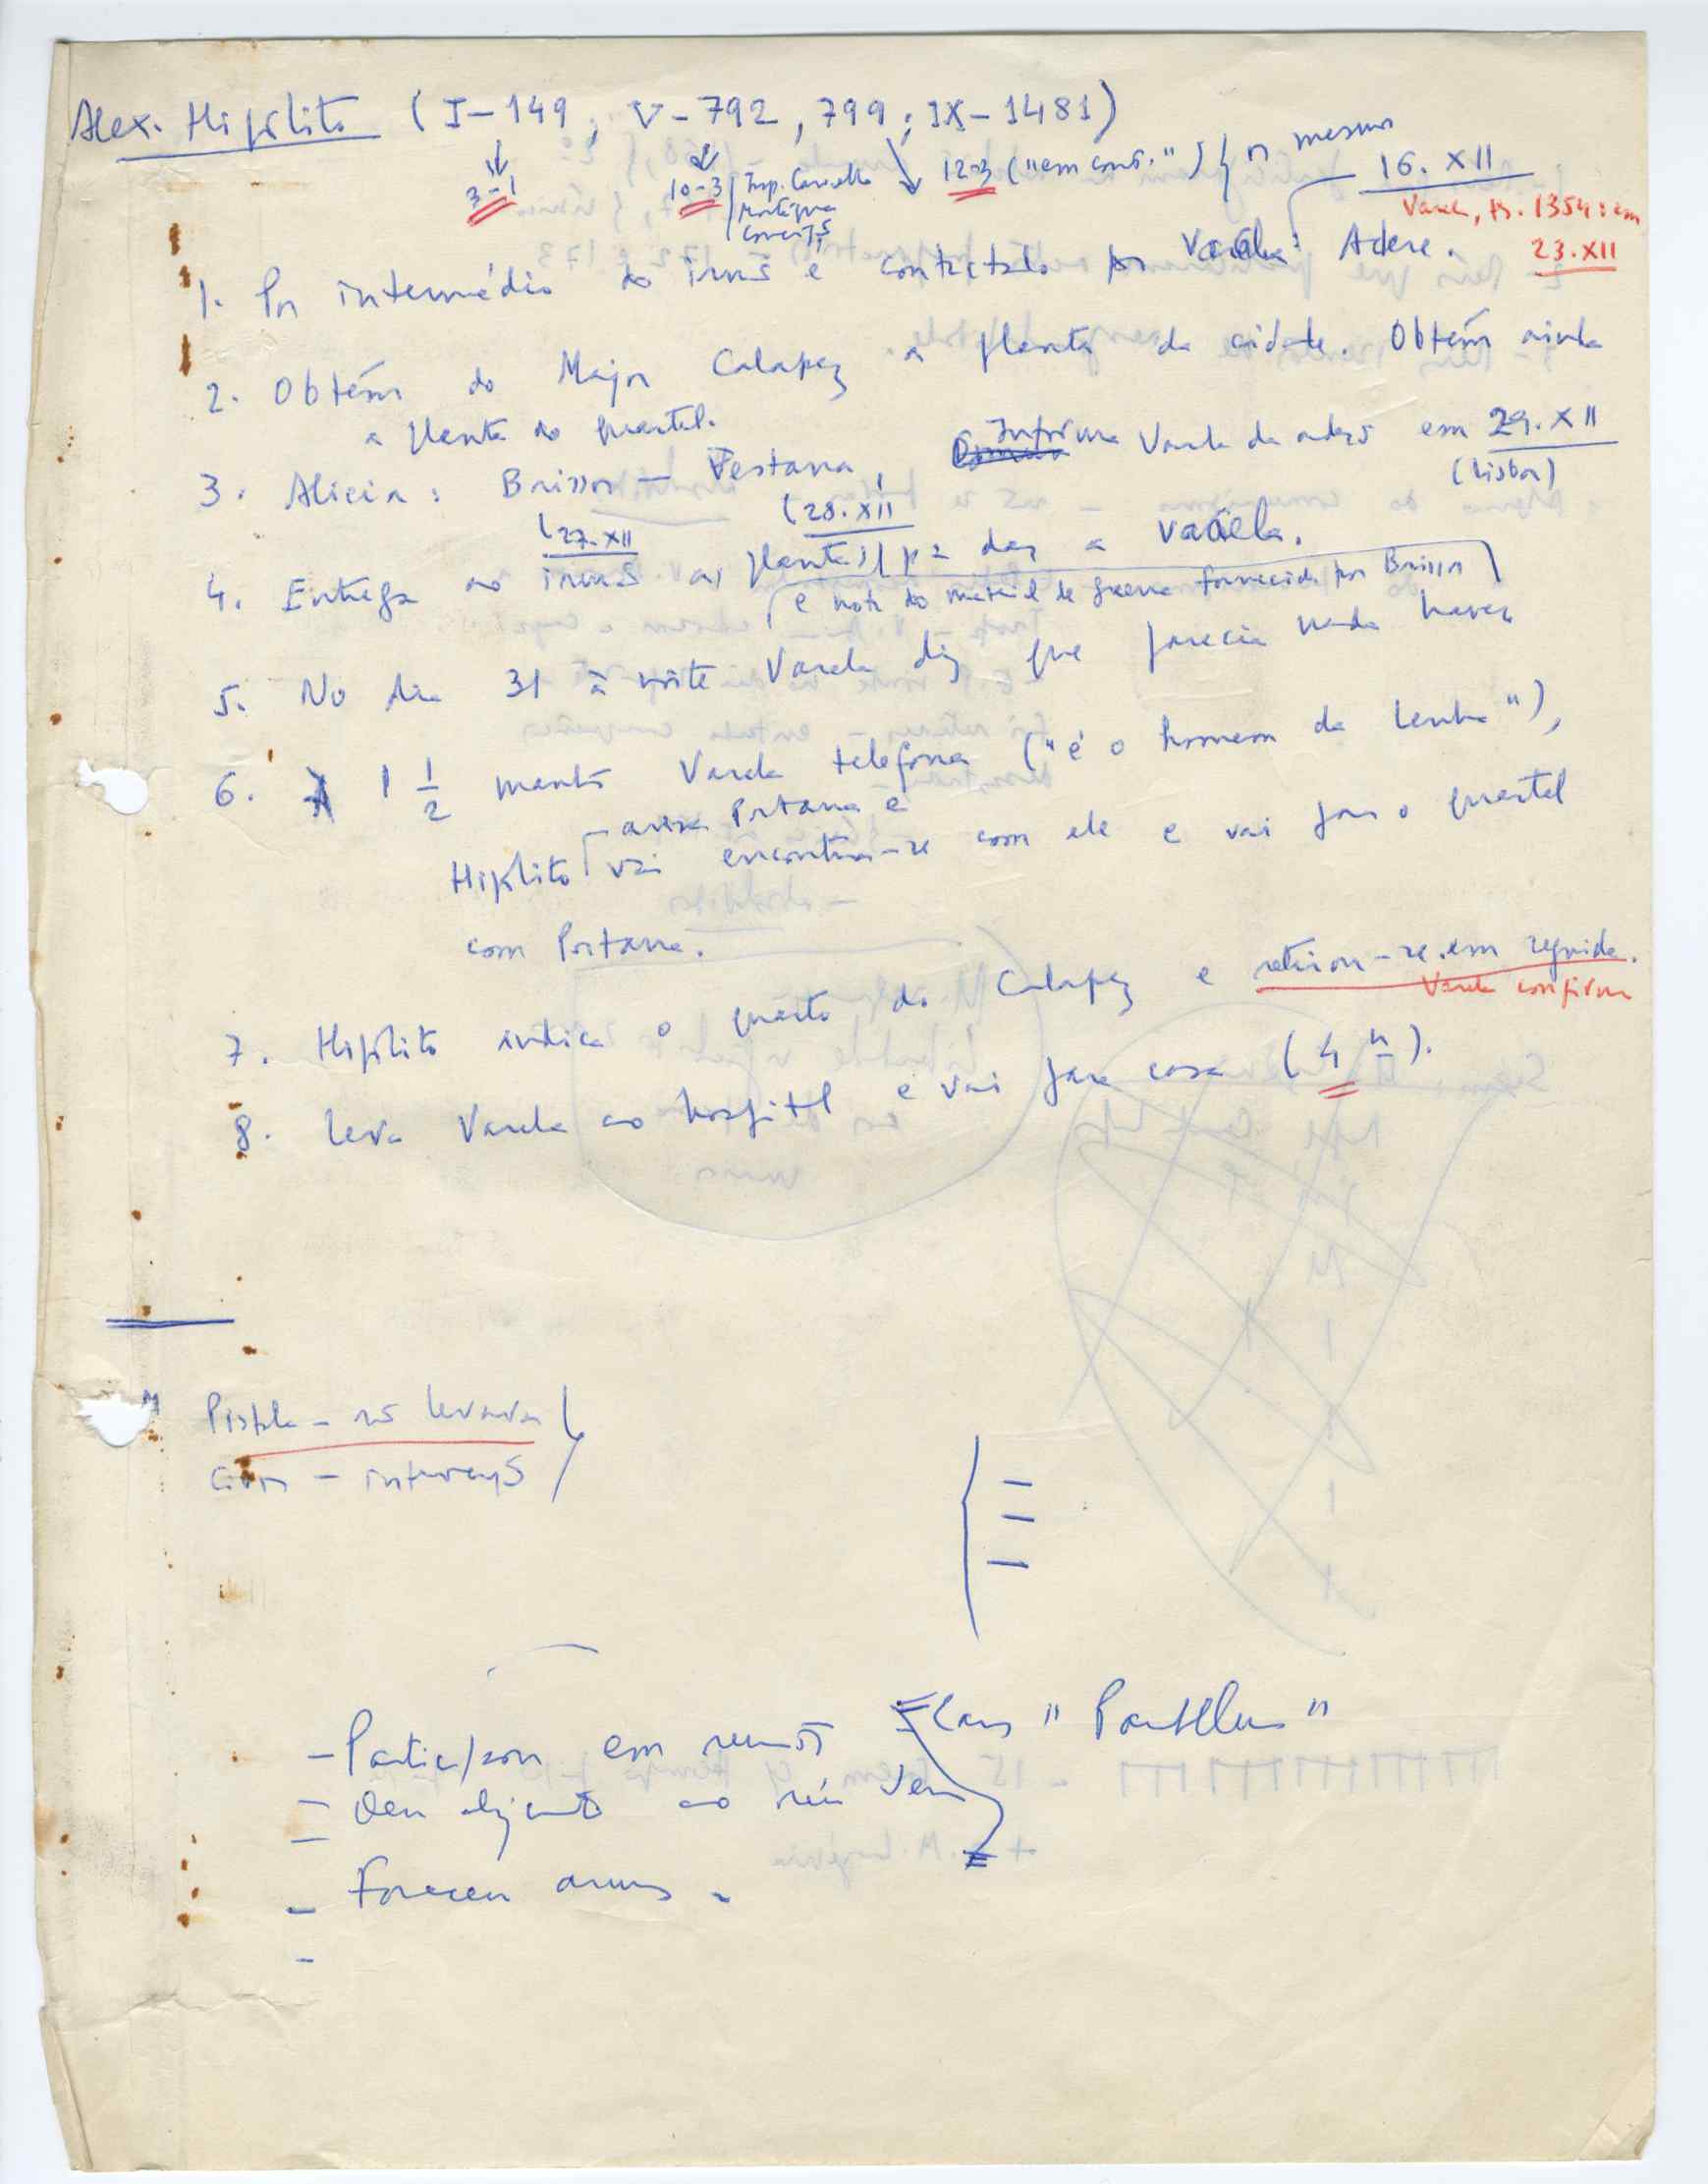 Alex. Hipólito (I-149; V-792, 799; IX-1481)
3-1 10-3 Insp. Carvalho 12-3 ("em cons.") } o mesmo 16. XII
Varela, fs. 1354: em
23.XII
1. Por intermédio do irmão é contactado por Varela: Adere.
2. Obtém do Major Calapez a planta da cidade. Obtém ainda
a planta do quartel.
3. Alicia: Brissos — Pestana, Informa Varela da adesão em 29.XII
(27.XII (28.XII (Lisboa)
4. Entrega ao irmão as plantas pª dar a Varela.
(e nota do material de guerra fornecida por Brissos)
5. No dia 31 à noite Varela diz que parecia nada haver
6. 1 1/2 manhã Varela telefona ("é o homem da lenha"),
avisa Pestana e
Hipólito vai encontrar-se com ele e vai para o quartel
com Pestana.
7. Hipólito indica o quarto do Calapez e retirou-se em seguida.
Varela confirma
8. Leva Varela ao hospital e vai para casa (4 h).
Pistola - não levava
- intervenção
- Participou em reunião "
- Deu ao réu
- Forneceu armas.
-